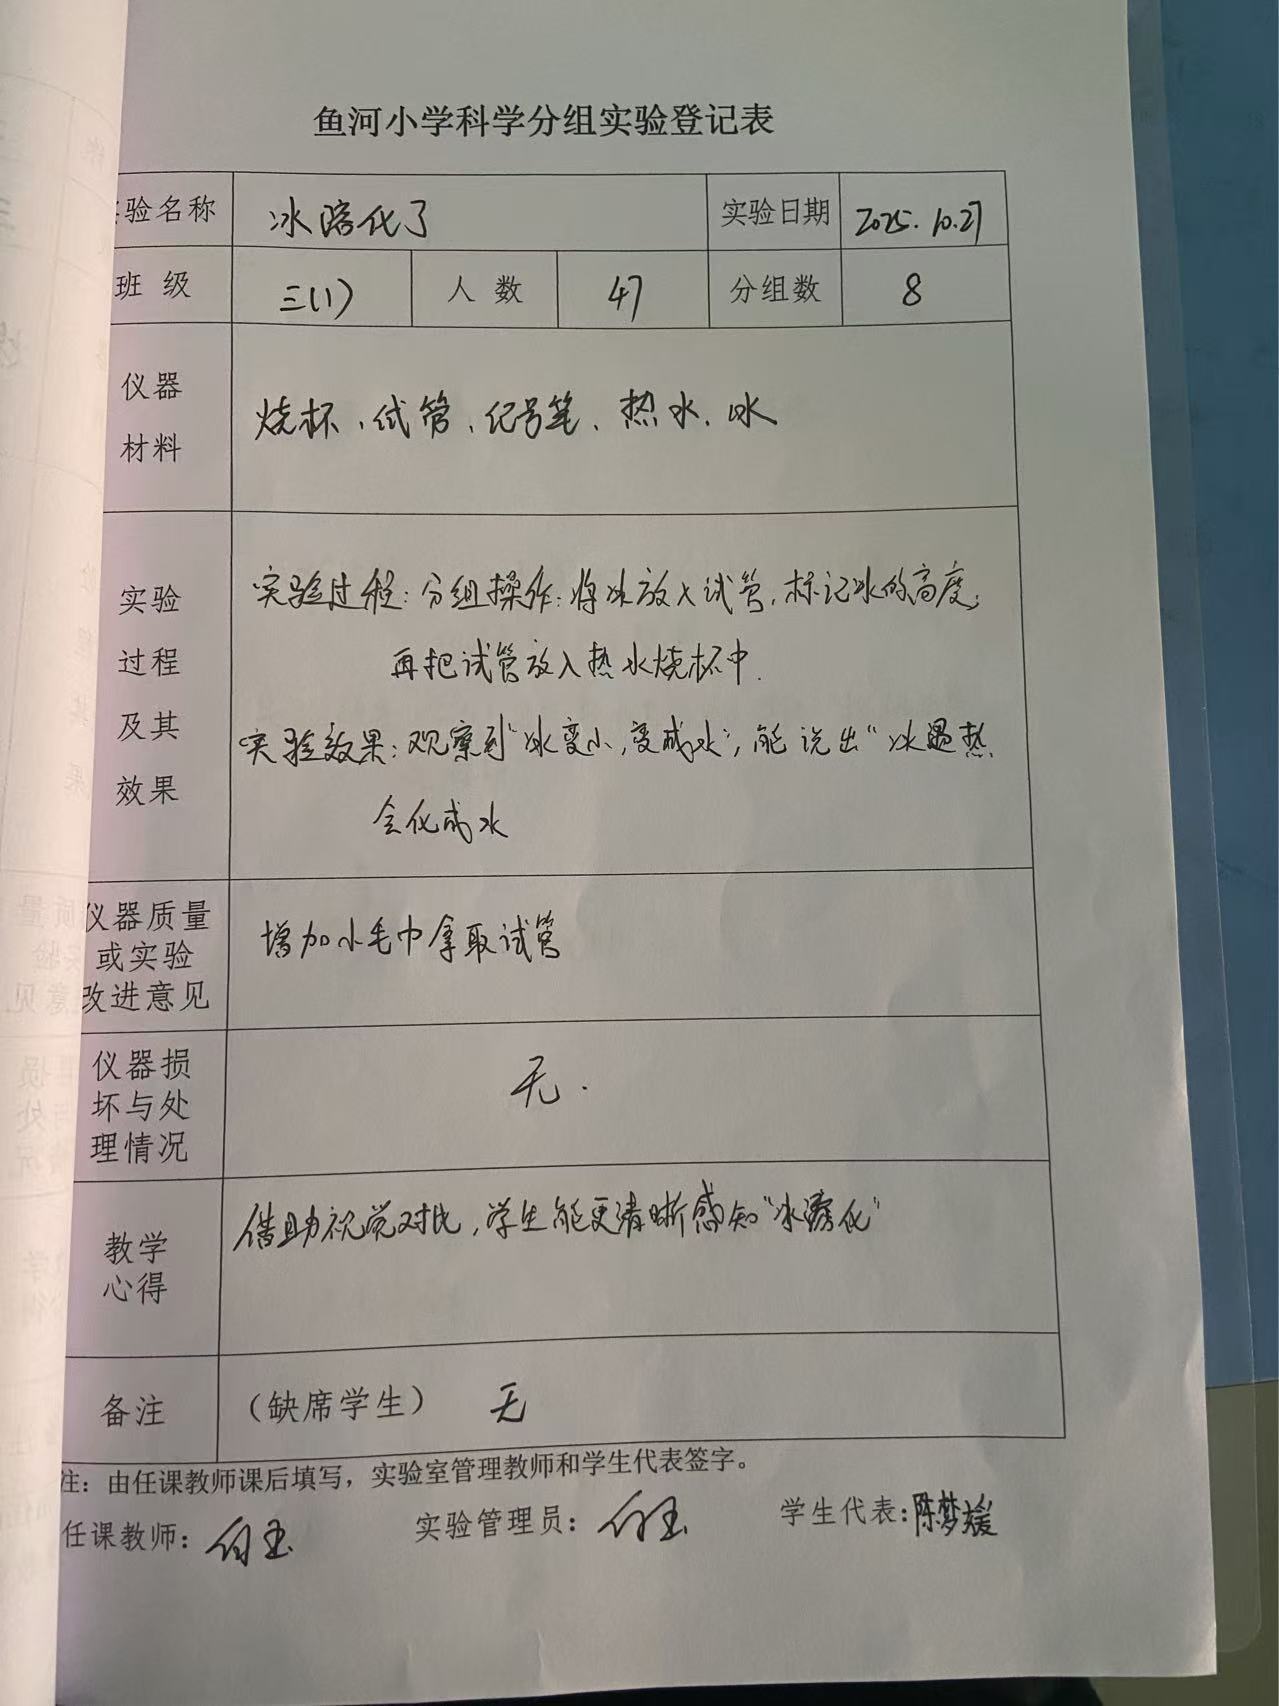 鱼河小学科学分组实验登记表
验名称 冰溶化了 实验日期 2025.10.27
班 级 三(1) 人 数 47 分组数 8
仪器
材料
烧杯、试管、记号笔、热水、冰
实验
过程
及其
效果
实验过程：分组操作：将冰放入试管，标记冰的高度；
再把试管放入热水烧杯中.
实验效果：观察到“冰变小，变成水”，能说出“冰遇热
会化成水
仪器质量
或实验
改进意见
增加小毛巾拿取试管
仪器损
坏与处
理情况
无.
教学
心得
借助视觉对比，学生能更清晰感知“冰溶化”
备注 （缺席学生） 无
注：由任课教师课后填写，实验室管理教师和学生代表签字。
任课教师： 实验管理员： 学生代表：陈梦媛